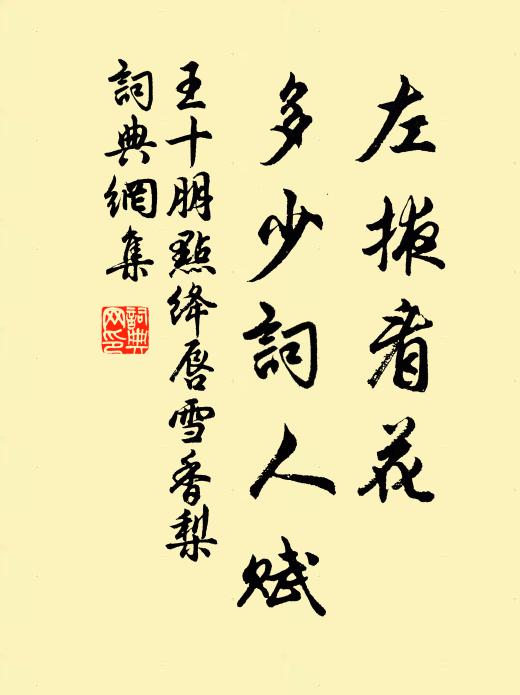 左掖看花
多少詞人賦
王十朋點絳唇雪香梨
詞典網集
詞典
网印